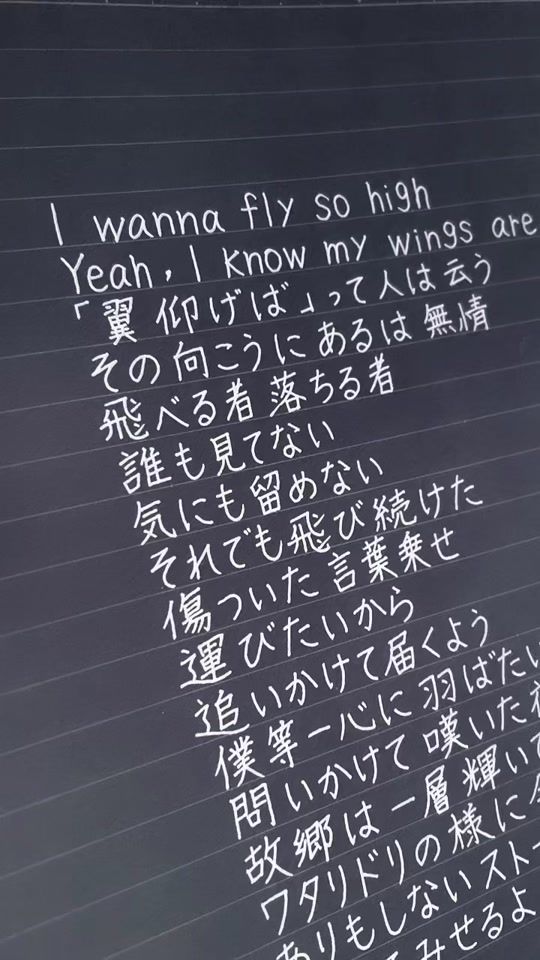 I wanna fly so high
Yeah, I know my wings are
「翼仰げば」って人は云う
その向こうにあるは無情
飛べる者落ちる者
誰も見てない
気にも留めない
それでも飛び続けた
傷ついた言葉乗せ
運びたいから
追いかけて届くよう
僕等一心に羽ばたい
問いかけて嘆いた
故郷は一層輝いて
ワタリドリの様に
ありもしないスト
みせるよ